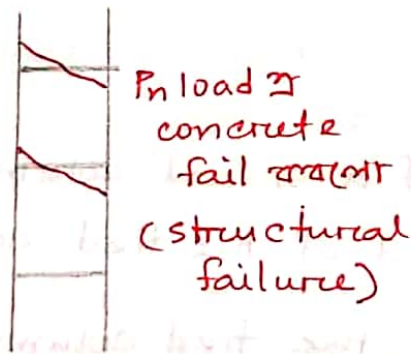 Pn load এ
concrete
fail করলো
(structural
failure)